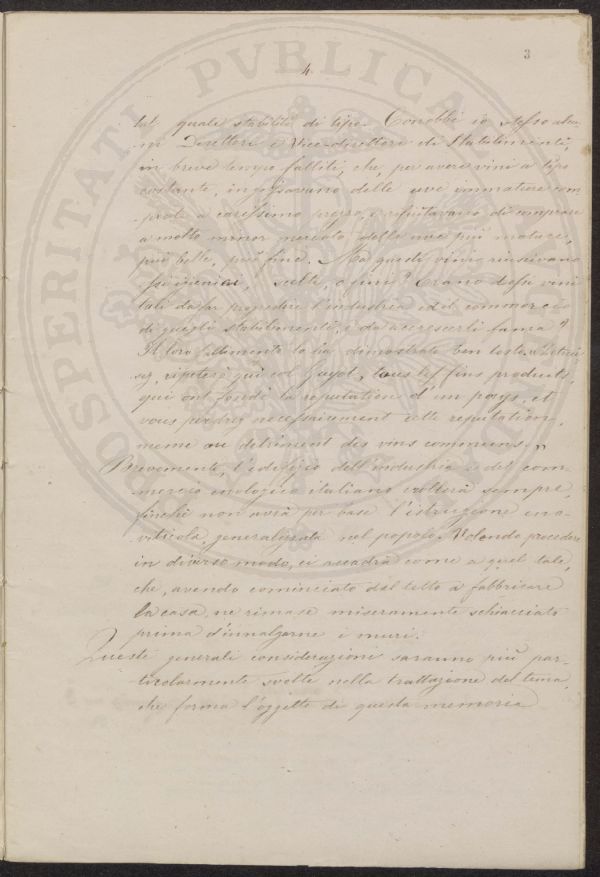 3
4
tal quale stabilità di tipo. Conobbi io stesso alcu-
ni Direttori e Vice-direttori di Stabilimenti,
in breve tempo falliti, che, per avere vini a tipo
costante, delle uve immature com
prate a carissimo prezzo, e rifiutavano di comprare
a molto minor mercato delle uve più mature,
più belle, più fine. Ma questi vini riuscivano
scelti, o fini? Erano dessi vini
tali da far progredire l'industria ed il commercio
di questi stabilimenti, e da accrescerli fama?
Il loro fallimento lo ha dimostrato ben tosto.
ripeterò qui col Guyot, tous les fins produits,
qui ont fondé la reputation d'un pays, et
vous perdrez necessairement cette reputation,
meme au detriment des vins communs."
Brevemente, l'edifizio dell'industria e del com-
mercio enologico italiano crollerà sempre,
finchè non avrà per base l'istruzione eno-
viticola, generalizzata nel popolo. Volendo procedere
in diverso modo, ci accadrà come a quel tale,
che, avendo cominciato dal tetto a fabbricare
la casa, ne rimase miseramente schiacciato
prima d'innalzarne i muri.
Queste generali considerazioni saranno più par-
ticolarmente svolte nella trattazione del tema,
che forma l'oggetto di questa memoria
PROSPERITATI PVBLICAE